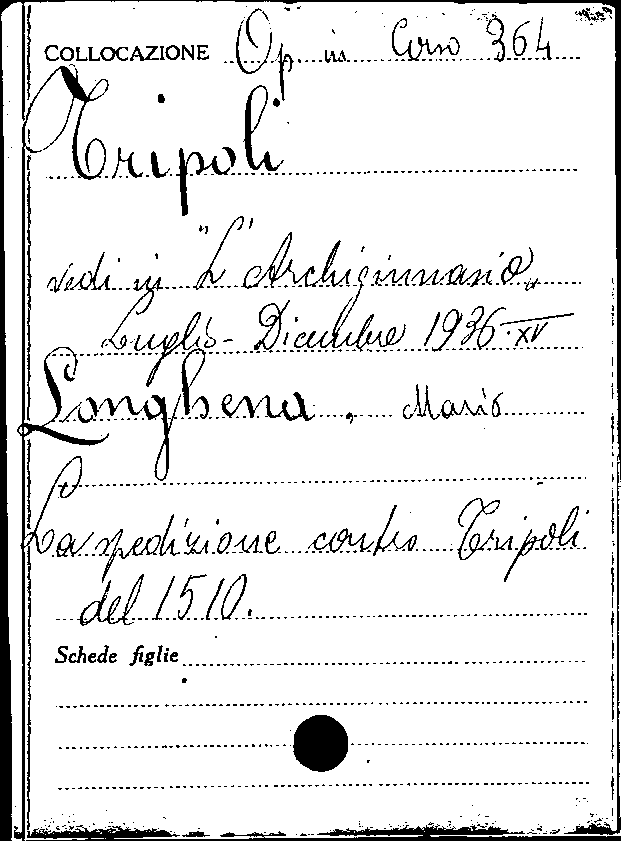 COLLOCAZIONE Op. in Corso 364
Tripoli
vedi in "L'Archiginnasio"
Luglio - Dicembre 1936-XV
Longhena, Mario
La spedizione contro Tripoli
del 1510.
Schede figlie